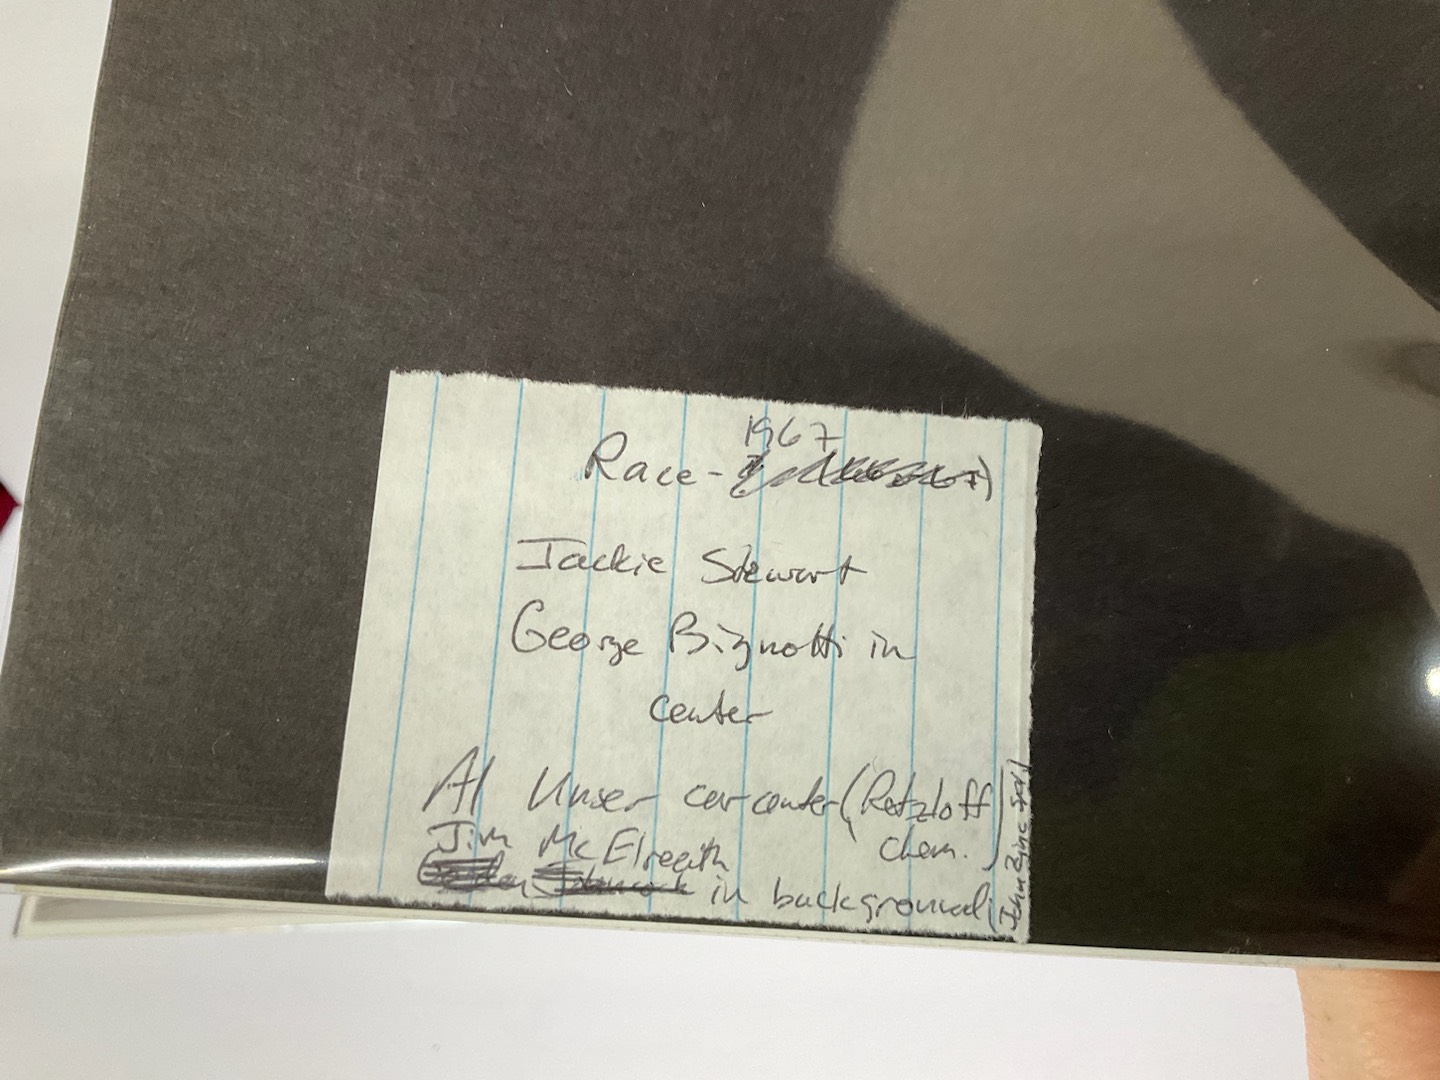 1967
Race -
Jackie Stewart
George Bignotti in
center
Al Unser car center (Retzloff
chem.)
Jim McElreath
in background
(John Zink